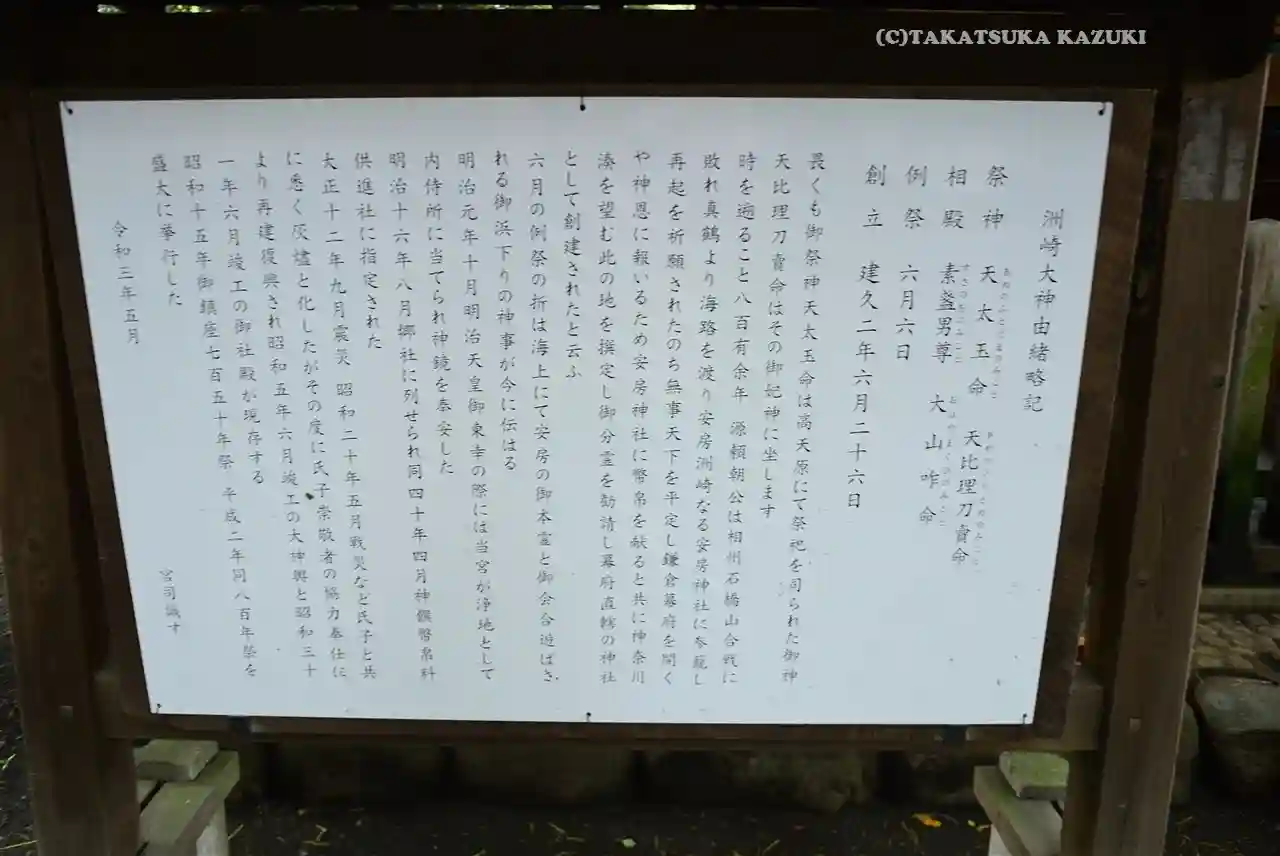 (C)TAKATSUKA KAZUKI
洲崎大神由緒略記
祭神 天太玉命 天比理刀賣命
相殿 素盞男尊 大山咋命
例祭 六月六日
創立 建久二年六月二十六日
畏くも御祭神天太玉命は高天原にて祭祀を司られた御神
天比理刀賣命はその御妃神に坐します
時を遡ること八百有余年 源頼朝公は相州石橋山合戦に
敗れ真鶴より海路を渡り安房洲崎なる安房神社に参籠し
再起を祈願されたのち無事天下を平定し鎌倉幕府を開く
や神恩に報いるため安房神社に幣帛を献ると共に神奈川
湊を望む此の地を撰定し御分霊を勧請し幕府直轄の神社
として創建されたと云ふ
六月の例祭の折は海上にて安房の御本霊と御会合遊ばさ
れる御浜下りの神事が今に伝はる
明治元年十月明治天皇御東幸の際には当宮が浄地として
内侍所に当てられ神鏡を奉安した
明治十六年八月郷社に列せられ同四十年四月神饌幣帛料
供進社に指定された
大正十二年九月震災 昭和二十年五月戦災など氏子と共
に悉く灰燼と化したがその度に氏子崇敬者の協力奉仕に
より再建復興され昭和五年六月竣工の大神輿と昭和三十
一年六月竣工の御社殿が現存する
昭和十五年御鎮座七百五十年祭 平成二年同八百年祭を
盛大に斎行した
令和三年五月
宮司識す